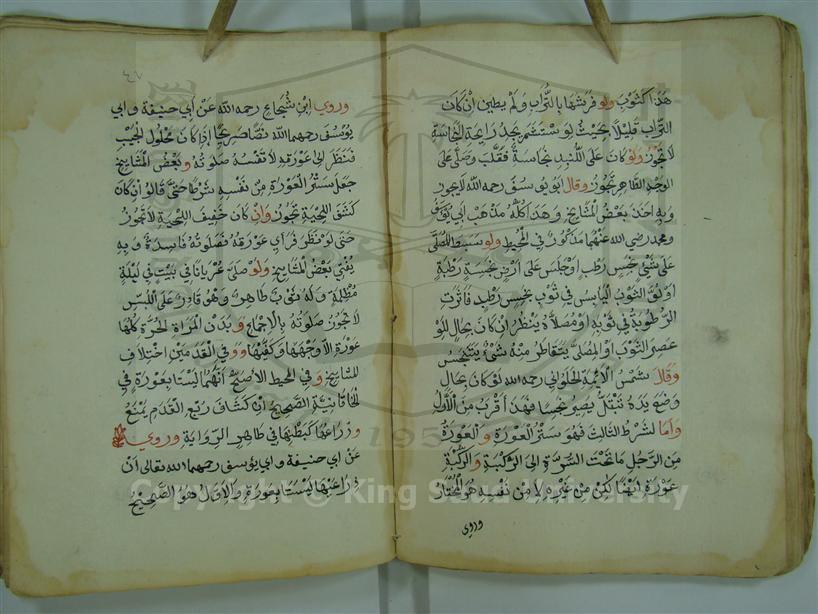 هذا كثوب ولو فرشها بالتراب ولم يطين ان كان
التراب قليلا بحيث لو استشم يجد رايحة النجاسة
لا تجوز ولو كان على اللبد نجاسة فقلب وصلى على
الوجه الطاهر تجوز وقال ابو يوسف رحمه الله لا يجوز
وبه اخذ بعض المشايخ وهذا كله مذهب ابي يوسف
ومحمد رضى الله عنهما مذكور في المحيط ولو بسط المصلى
على شئ نجس رطب او جلس على ارض نجسة رطبة
او لف الثوب اليابس في ثوب نجس رطب فاثرت
الرطوبة في ثوبه او مصلاه ينظر ان كان بحال لو
عصر الثوب او المصلى يتقاطر منه شئ يتنجس
وقال شمس الائمة الحلواني رحمه الله لو كان بحال
وضع يده تبتل يصير نجسا فهذا اقرب من الاول
واما الشرط الثالث فهو ستر العورة والعورة
من الرجل ما تحت السرة الى الركبة والركبة
عورة ايضا لكن من غيره لا من نفسه هو المختار
وروي
وروي ابن شجاع رحمه الله عن ابي حنيفة وابي
يوسف رحمهما الله نصا صريحا اذا كان محلول الجيب
فنظر الى عورته لا تفسد صلوته وبعض المشايخ
جعل ستر العورة من نفسه شرطا حتى قالوا ان كان
كشف اللحية تجوز وان كان خفيف اللحية لا تجوز
حتى لو نظر فراي عورته فصلوته فاسدة وبه
يفتي بعض المشايخ ولو صلى عريانا في بيت في ليلة
مظلمة وله ثوب طاهر وهو قادر على اللبس
لا تجوز صلوته بالاجماع وبدن المراة الحرة كلها
عورة الا وجهها وكفيها وفي القدمين اختلاف
المشايخ وفي المحيط الاصح انهما ليستا بعورة في
الخاقانية الصحيح ان كشاف ربع القدم يمنع
وذراعها كبطنها في ظاهر الرواية وروي
عن ابي حنيفة وابي يوسف رحمهما الله تعالى ان
ذراعيها ليستا بعورة والاول هو الصحيح
Copyright © King Saud University